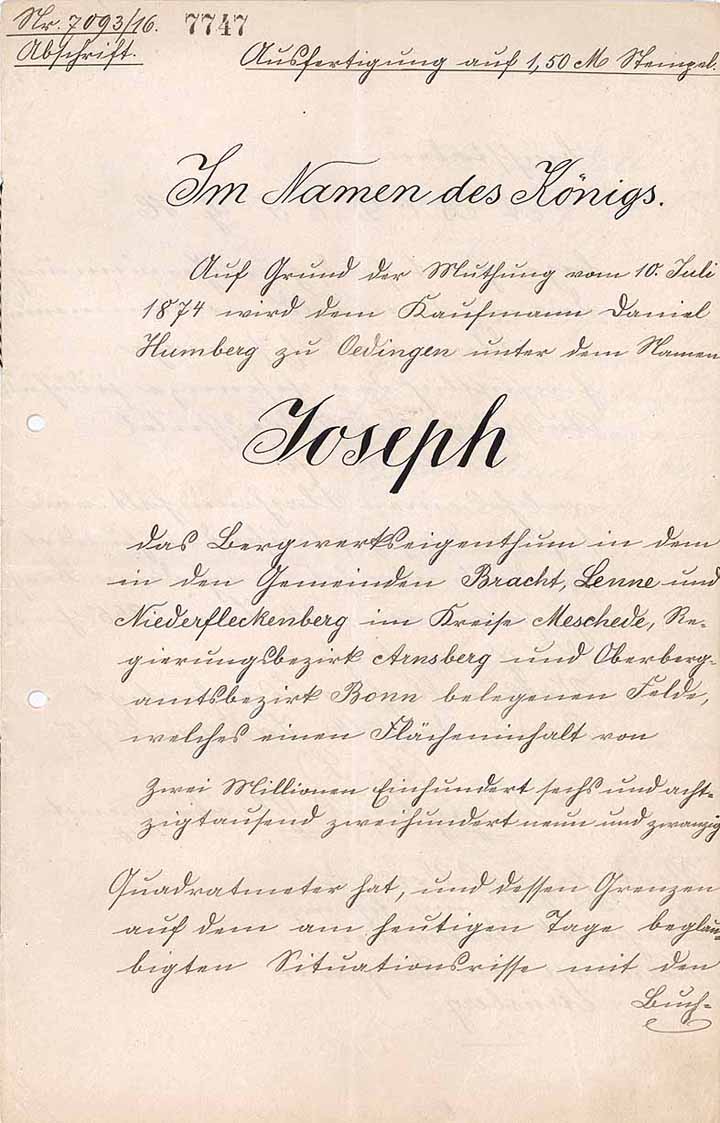 Nr. 7093/16. 7747
Abschrift.
Ausfertigung auf 1,50 M Stempel.
Im Namen des Königs.
Auf Grund der Muthung vom 10. Juli
1874 wird dem Kaufmann Daniel
Humberg zu Oedingen unter dem Namen
Joseph
das Bergwerkseigenthum in dem
in den Gemeinden Bracht, Lenne und
Niederfleckenberg im Kreise Meschede, Re-
gierungsbezirk Arnsberg und Oberberg-
amtsbezirk Bonn belegenen Felde,
welches einen Flächeninhalt von
Zwei Millionen Einhundert sechs und acht-
zigtausend zweihundert neun und zwanzig
Quadratmeter hat, und dessen Grenzen
auf dem am heutigen Tage beglau-
bigten Situationsrisse mit den
Buch-